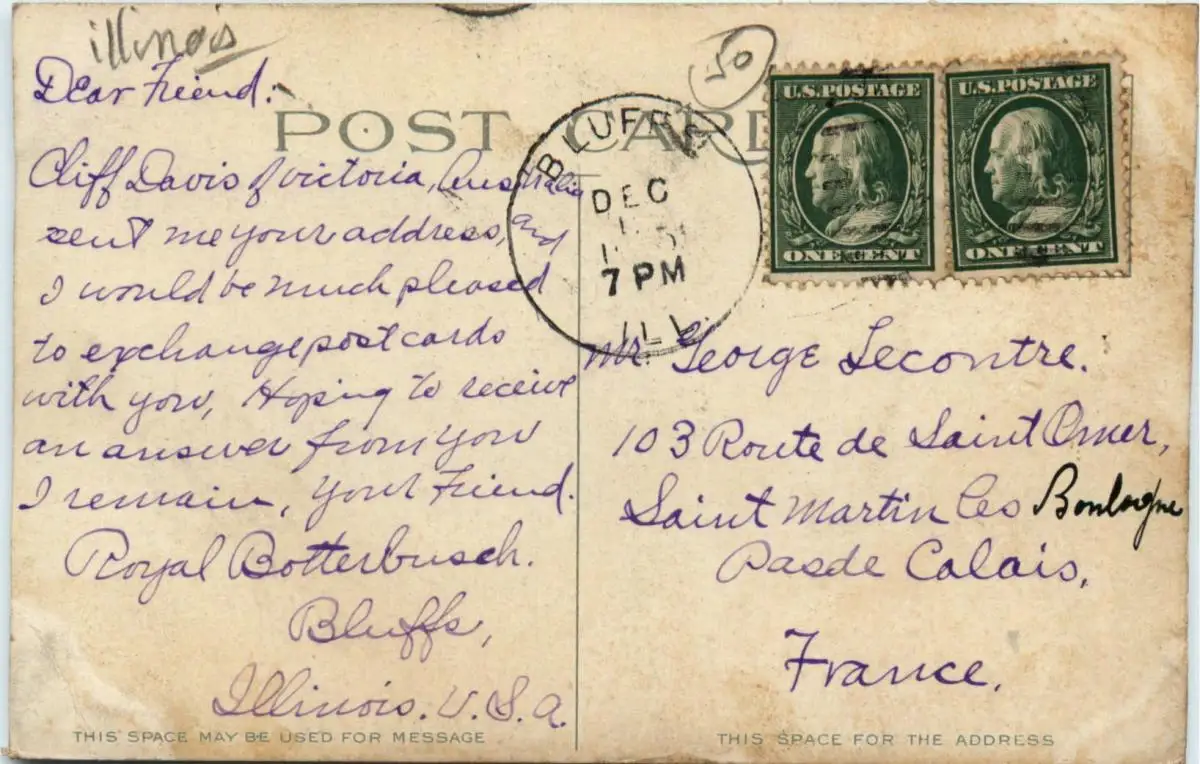 illinois
50
Dear Friend:
POST CARD
Cliff Davis of victoria, Australia
sent me your address, and
I would be much pleased
to exchange postcards
with you, Hoping to receive
an answer from you
I remain, your Friend.
Royal Botterbusch.
Bluffs,
Illinois. U.S.A.
THIS SPACE MAY BE USED FOR MESSAGE
BLUFFS
DEC
7 PM
ILL.
U.S. POSTAGE
ONE CENT
U.S. POSTAGE
ONE CENT
Mr. George Lecontre.
103 Route de Saint Omer,
Saint Martin les Boulogne
Pas de Calais,
France.
THIS SPACE FOR THE ADDRESS